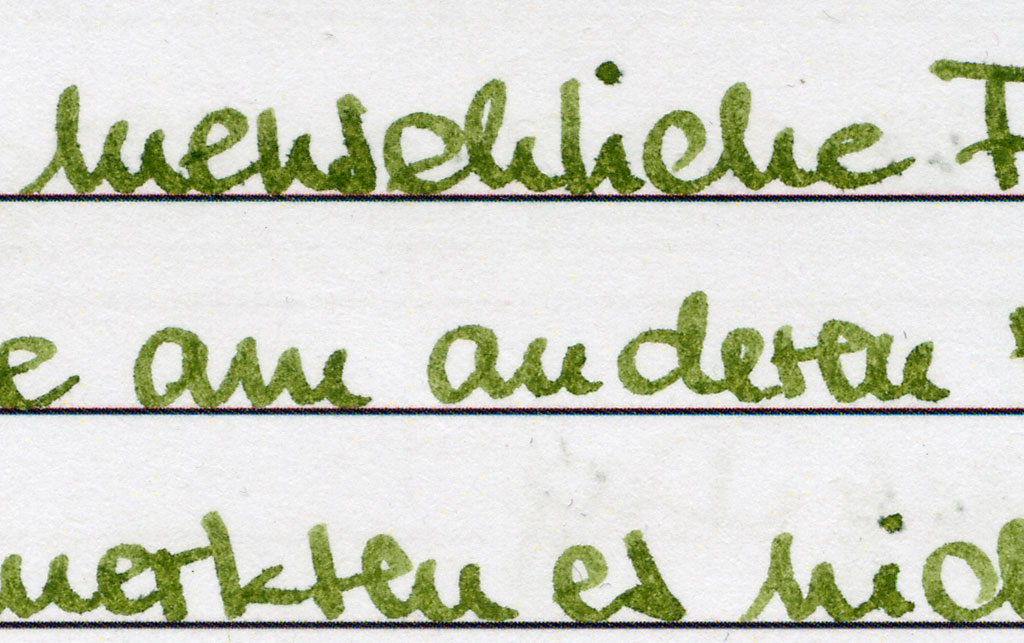 menschliche F
e am anderen
merkten es nic